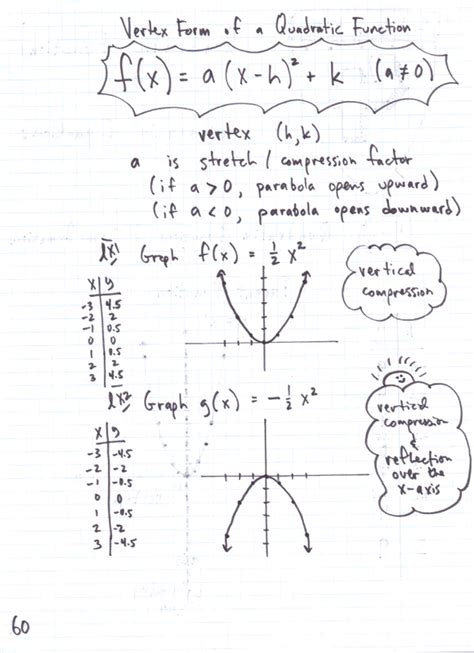 Vertex Form of a Quadratic Function
f(x) = a (x-h)² + k (a ≠ 0)
vertex (h, k)
a is stretch / compression factor
(if a > 0, parabola opens upward)
(if a < 0, parabola opens downward)
Ex1 Graph f(x) = 1/2 x²
x | y
-3 | 4.5
-2 | 2
-1 | 0.5
0 | 0
1 | 0.5
2 | 2
3 | 4.5
vertical
compression
Ex2 Graph g(x) = -1/2 x²
x | y
-3 | -4.5
-2 | -2
-1 | -0.5
0 | 0
1 | -0.5
2 | -2
3 | -4.5
vertical
compression
&
reflection
over the
x-axis
60